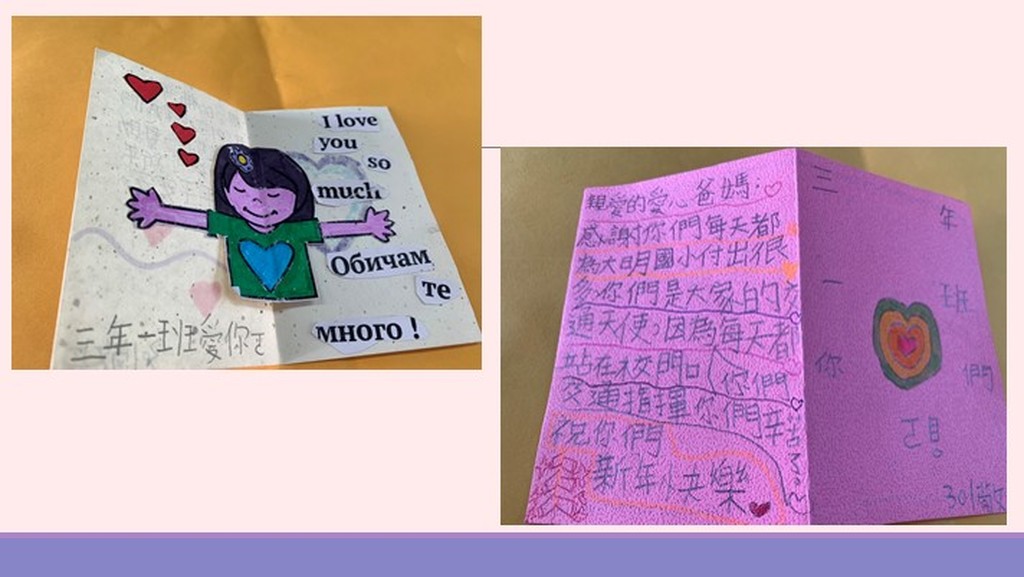 I love
you
so
much
Обичам
те
много !
三年一班愛你
親愛的愛心爸媽:
感謝你們每天都
為大明國小付出很
多你們是大家的交
通天使,因為每天都
站在校門口(你們
交通指揮你們辛苦
祝你們
新年快樂
三 年
一 班
你 們
301